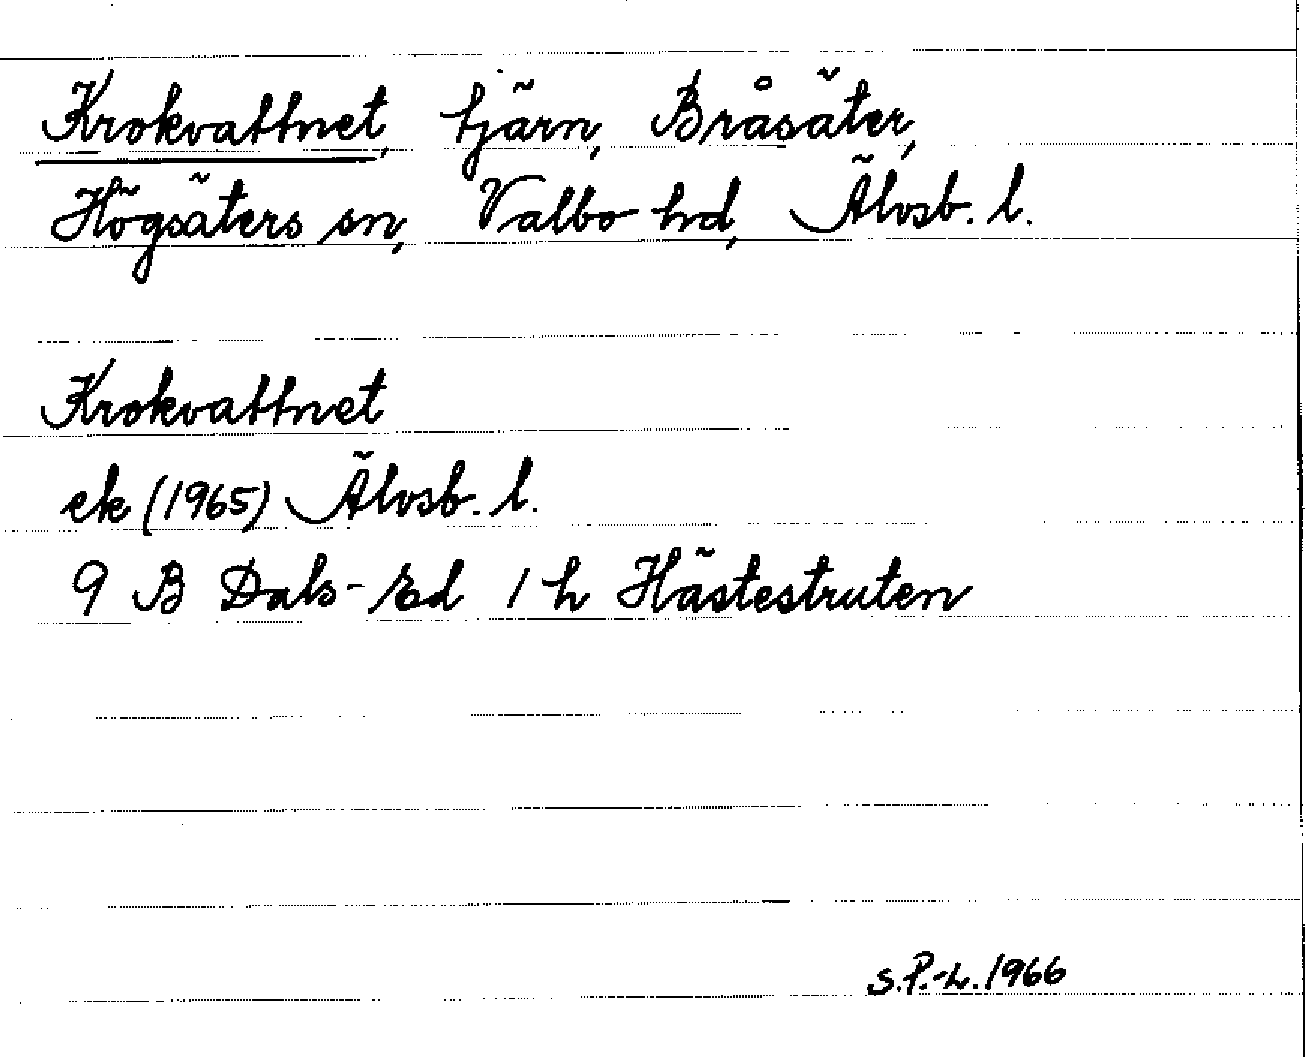 Krokvattnet, tjärn, Bråsäter,
Högsäters sn, Valbo hd, Älvsb. l.
Krokvattnet
ek (1965) Älvsb. l.
9 B Dals-Ed 1 h Hästestruten
S.P.-L. 1966